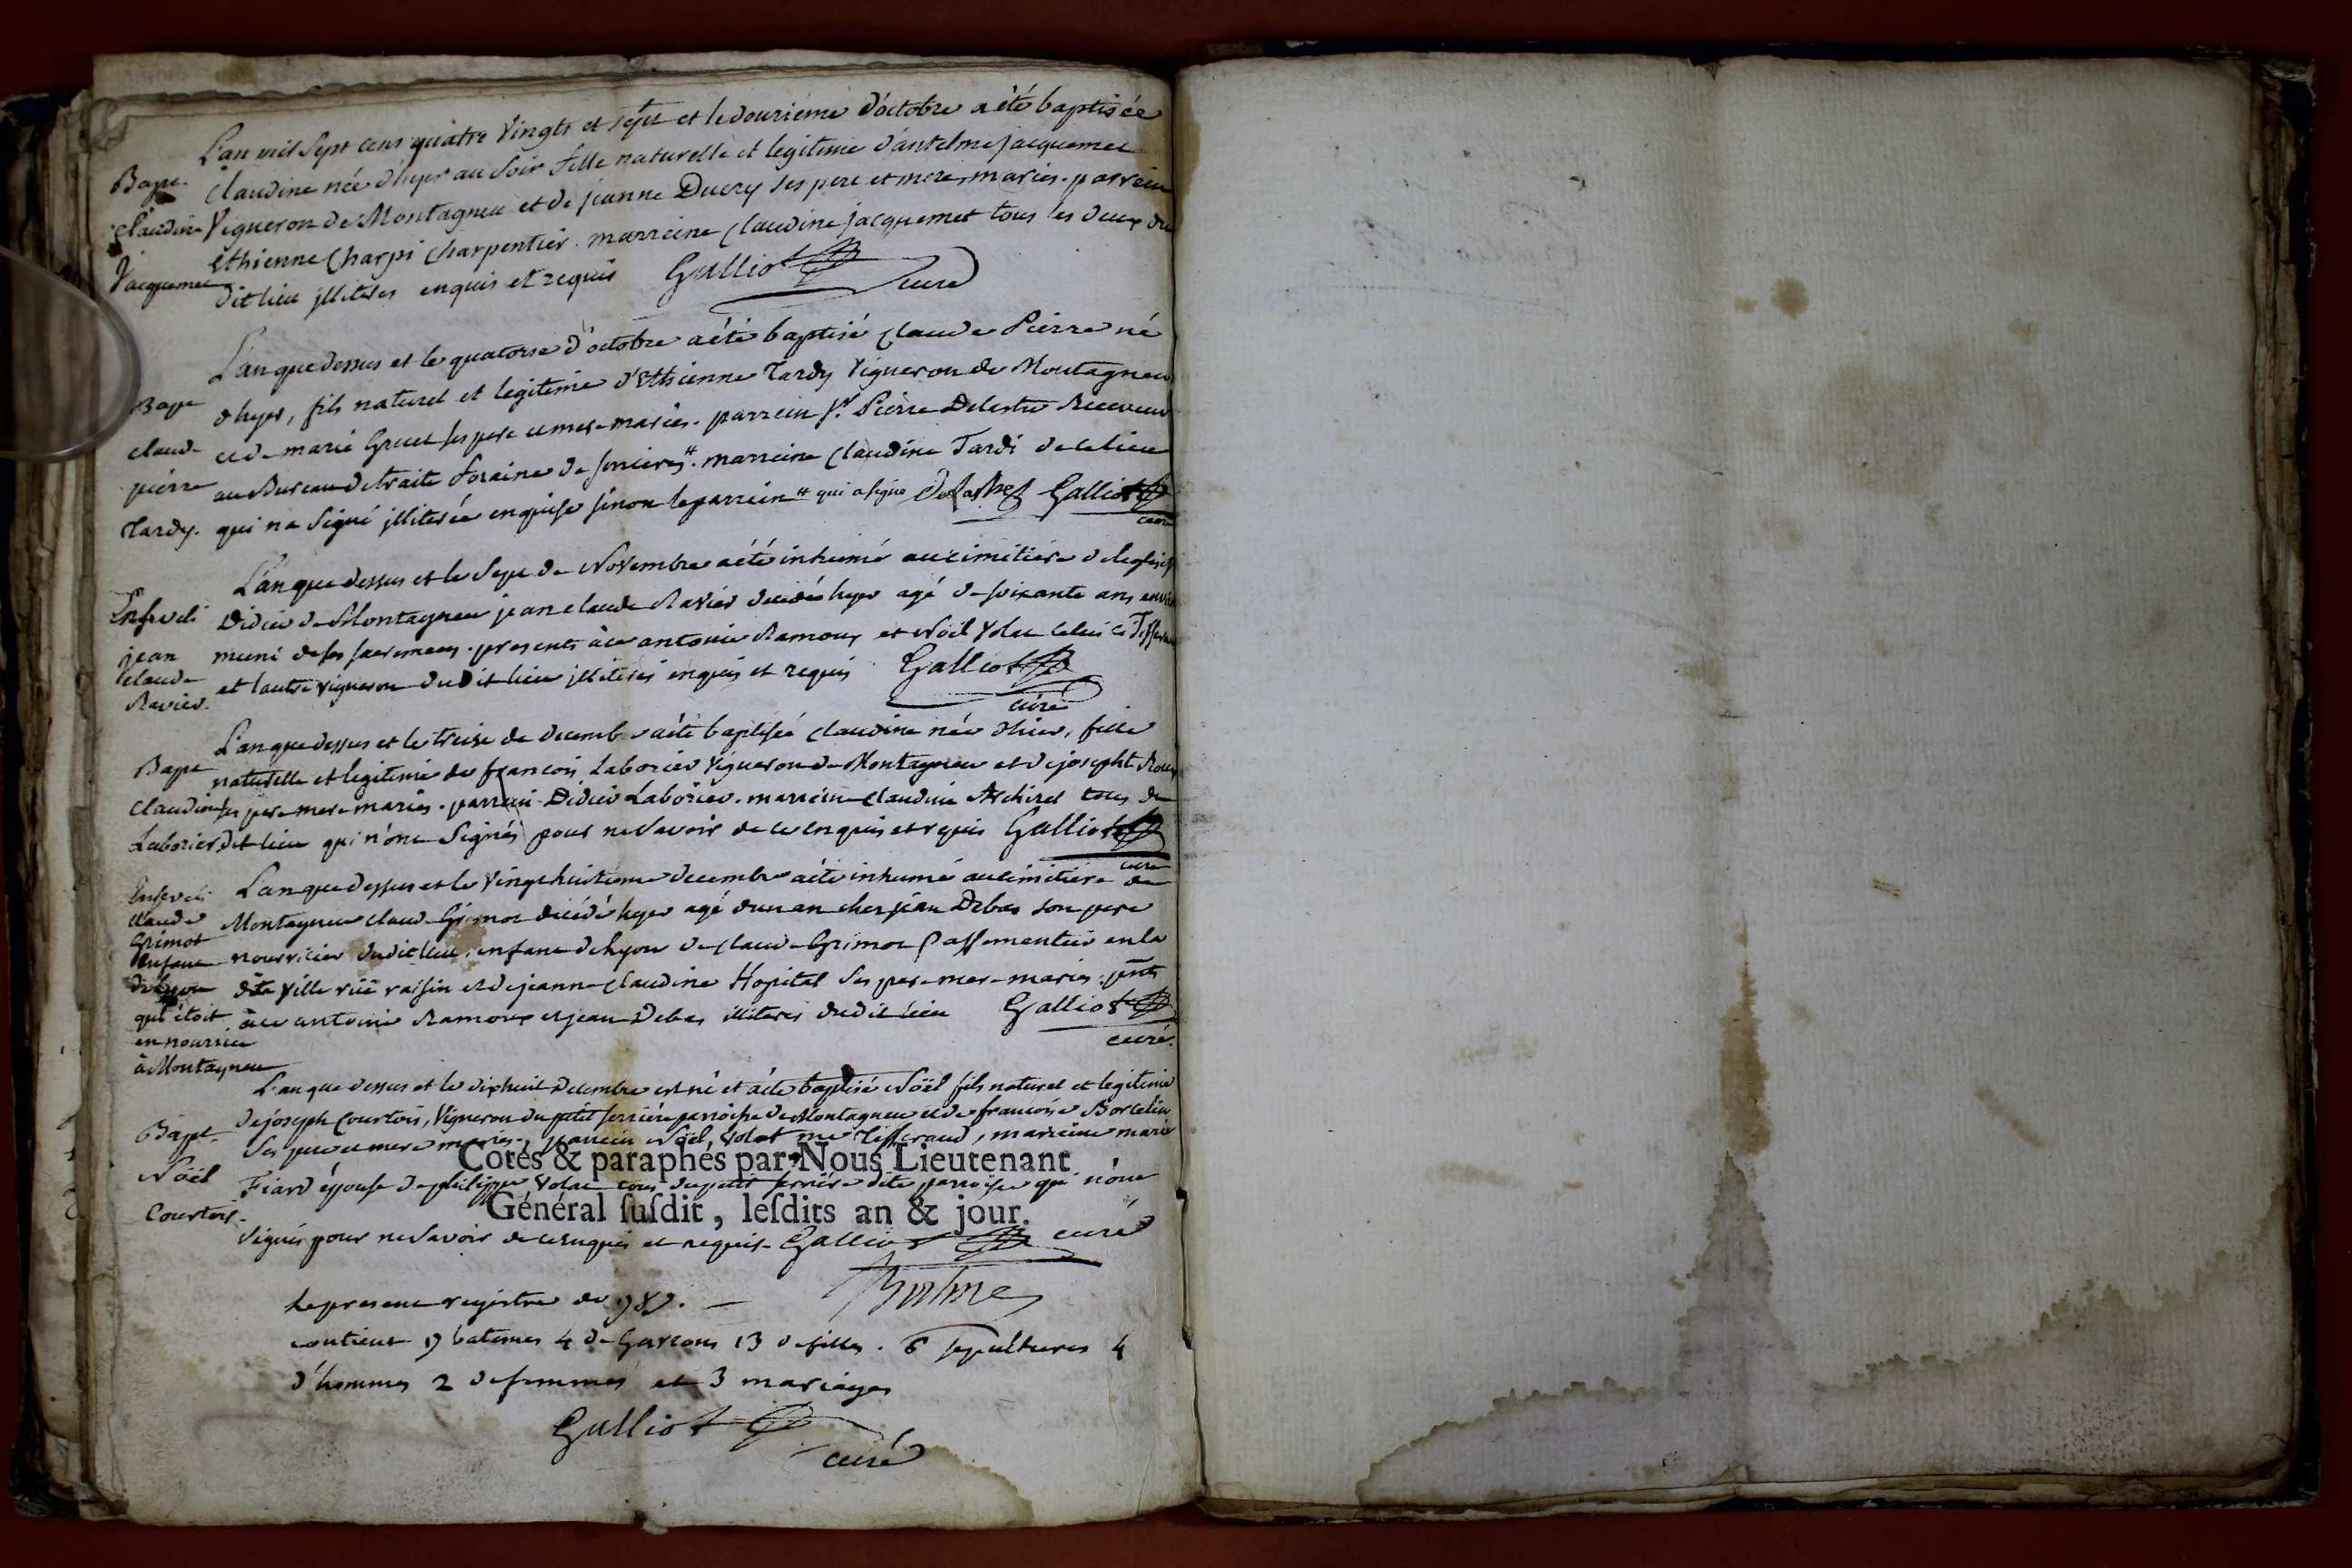 L'an mil sept cens quatre vingts et sept et le douzième d'octobre a été baptisée
Bapt. Claudine née d'hyer au soir fille naturelle et legitime d'antelme jacquemet
Claudine Vigneron de Montagneu et de jeanne Ducry ses pere et mere mariés. parrein
Ethienne Charpi Charpentier. marreine Claudine jacquemet tous les deux du
Jacquemet dit lieu jlliterés enquis et requis Galliot curé
L'an que dessus et le quatorse d'octobre a été baptisé Claude Pierre né
Bapt d'hyer, fils naturel et legitime d'Ethienne Tardy Vigneron de Montagneu
claude et de marie Grucet ses pere et mere mariés. parrein sr. Pierre Delastre Receveur
pierre au Bureau de traite foraine de . marreine Claudine Tardi de ce lieu
Tardy. qui n'a signé jlliterée enquise sinon le parrein qui a signé Delastre Galliot
curé
L'an que dessus et le sept de Novembre a été inhumé au cimitière
Enseveli Didier de Montagneu jean claude Ravier decedé hyer agé de soixante ans environ
jean muni de ses sacremens. presents à ce antoine Ramoux et Noël Volat celui ci Tisserand
claude et l'autre vigneron du dit lieu jlliterés enquis et requis Galliot
Ravier. curé
L'an que dessus et le treise de decembre a été baptisée claudine née d'hier, fille
Bapt naturelle et legitime de françois Laborier Vigneron de Montagneu et de josephte
claudine ses pere mere mariés. parrein Didier Laborier. marreine claudine tous du
Laborier dit lieu qui n'ont signés pour ne savoir de ce enquis et requis Galliot
curé
Enseveli L'an que dessus et le vingt huitieme decembre a été inhumé au cimitiere de
claude Montagneu claude Grimot decédé hyer agé d'un an chez jean Debas son pere
Grimot nourricier dudit lieu, enfant de lyon de claude Grimot Passementier en la
enfant
de lyon dite ville rüe raisin et de jeanne claudine Hopital ses pere mere mariés. pnts
qui étoit à ce antoine Ramoux et jean Debas illiterés dudit lieu Galliot
en nourrice curé.
à Montagneu
L'an que dessus et le dixhuit Decembre est né et a été baptisé Noël fils naturel et legitime
de joseph Courtois, Vigneron du petit serrière parroisse de Montagneu et de francoise
Bapt. ses pere et mere mariés, parrein Noël Volat me Tisserand, marreine marie
Cotés & paraphés par Nous Lieutenant
Noël Fiard épouse de philippe Volat tous du petit serrière dite parroisse qui n'ont
Général susdit, lesdits an & jour.
Courtois. signés pour ne savoir de ce enquis et requis. Galliot curé
Le present registre de 1787.
contient 17 batemes 4 de Garcons 13 de filles. 6 sepultures 4
d'hommes 2 de femmes et 3 mariages
Galliot
curé